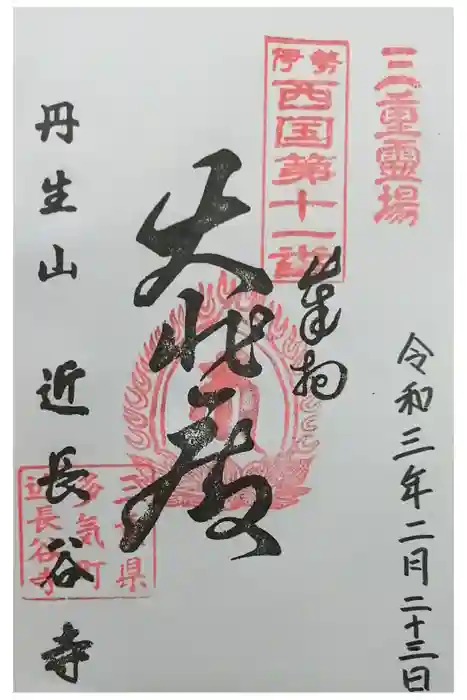 三重霊場
令和三年二月二十三日
伊勢
西国第十一番
奉拝
大悲殿
丹生山 近長谷寺
三重県
多気町
近長谷寺